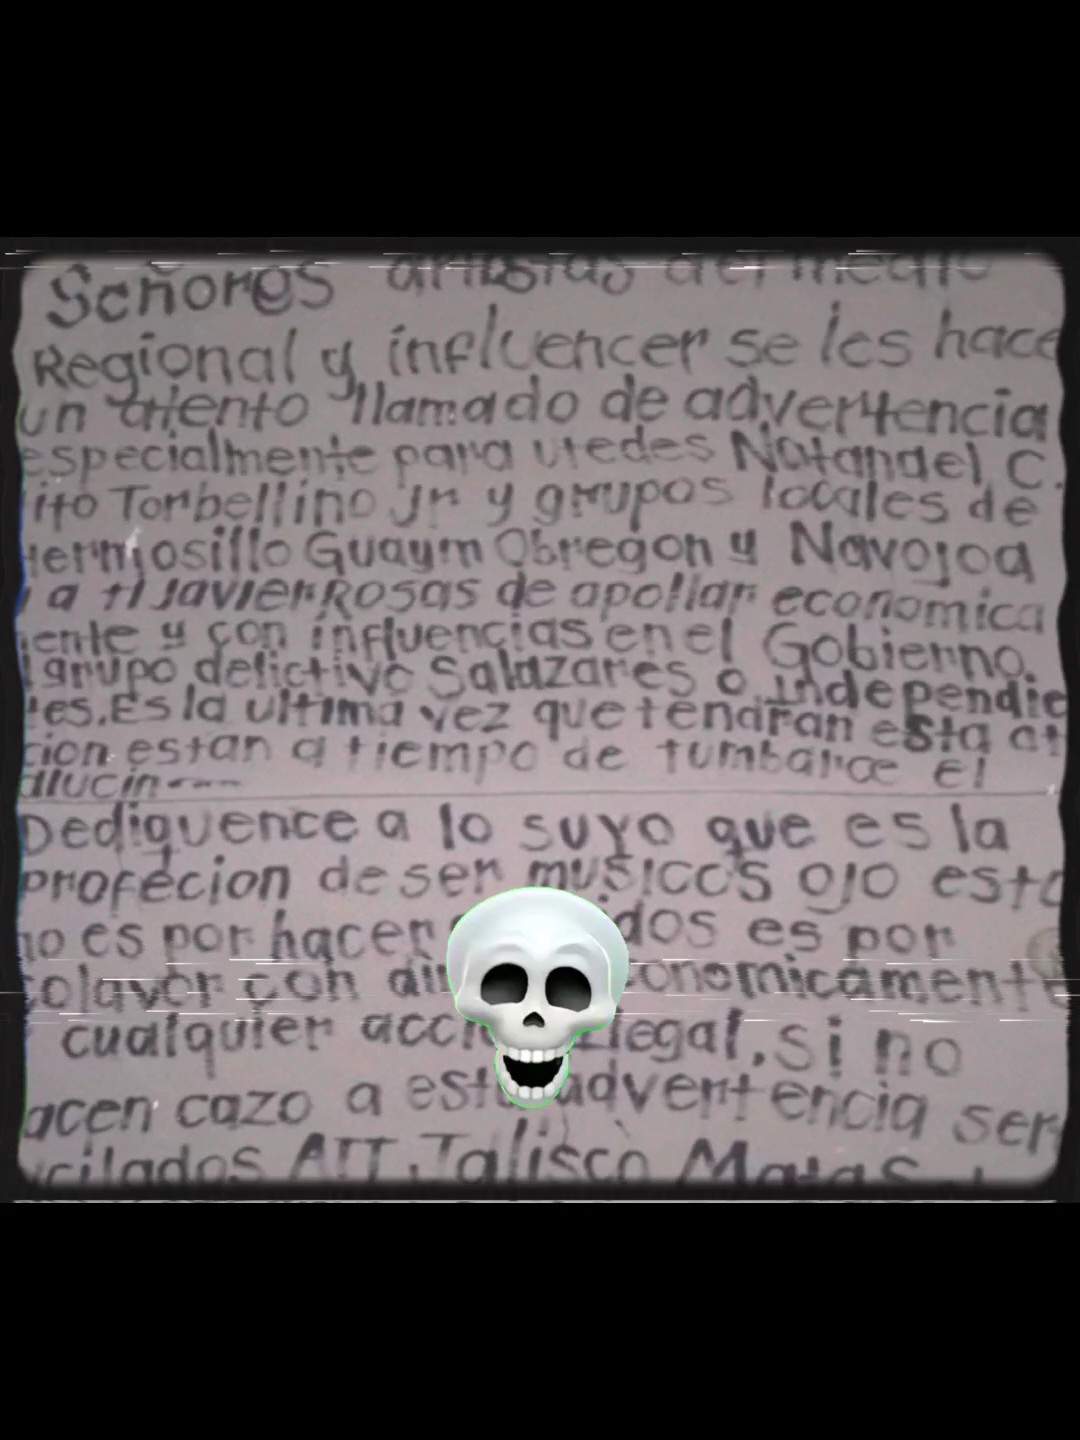 Señores artistas del medio
Regional y influencer se les hace
un atento llamado de advertencia
especialmente para utedes Natanael C.
ito Torbellino Jr y grupos locales de
Hermiosillo Guaym Obregon y Navojoa
a ti JavierRosas de apollar economica
mente y con influencias en el Gobierno.
grupo delictivo Salazares o independie
tes. Es la ultima vez que tendran esta at
cion estan a tiempo de tumbarce el
alucin----
Dediquence a lo suyo que es la
profecion de ser musicos ojo esto
no es por hacer dos es por
colavor con economicamente
cualquier legal, si no
acen cazo a esta advertencia ser
cilados ATT. Jalisco Matas